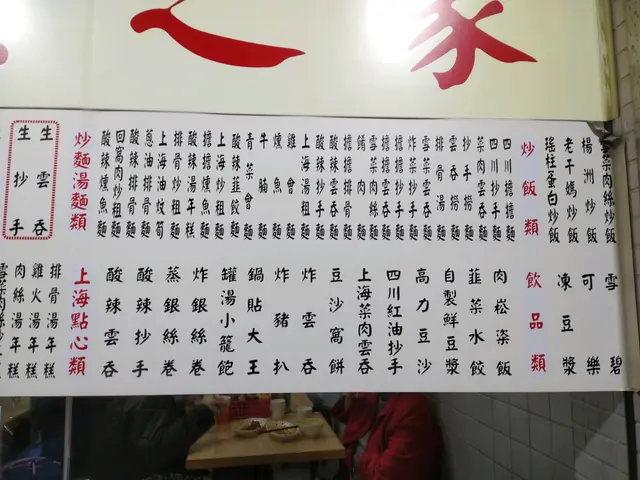 之家
菜肉絲炒飯
楊洲炒飯
老干媽炒飯
瑤柱蛋白炒飯
炒飯類
四川擔擔麵
四川抄手麵
菜肉雲吞麵
抄手撈麵
雲吞撈麵
排骨湯麵
雪菜雲吞麵
炸菜抄手麵
擔擔雲吞麵
雪菜肉絲麵
餚肉麵
擔擔排骨麵
酸辣抄手麵
酸辣雲吞麵
上海湯麵
雞會麵
燻魚麵
牛腩麵
青菜會麵
酸辣韮餃麵
上海炒粗麵
擔擔燻魚麵
酸辣湯年糕
排骨炒粗麵
上海油炆筍
蔥油排骨麵
酸辣排骨麵
回窩肉炒粗麵
酸辣燻魚麵
炒麵湯麵類
生雲吞
生抄手
雪碧
可樂
凍豆漿
飲品類
肉崧粢飯
韮菜水餃
自製鮮豆漿
高力豆沙
四川紅油抄手
上海菜肉雲吞
豆沙窩餅
炸雲吞
炸豬扒
鍋貼大王
罐湯小籠飽
炸銀絲卷
蒸銀絲卷
酸辣抄手
酸辣雲吞
上海點心類
排骨湯年糕
雞火湯年糕
肉絲湯年糕
雪菜肉絲